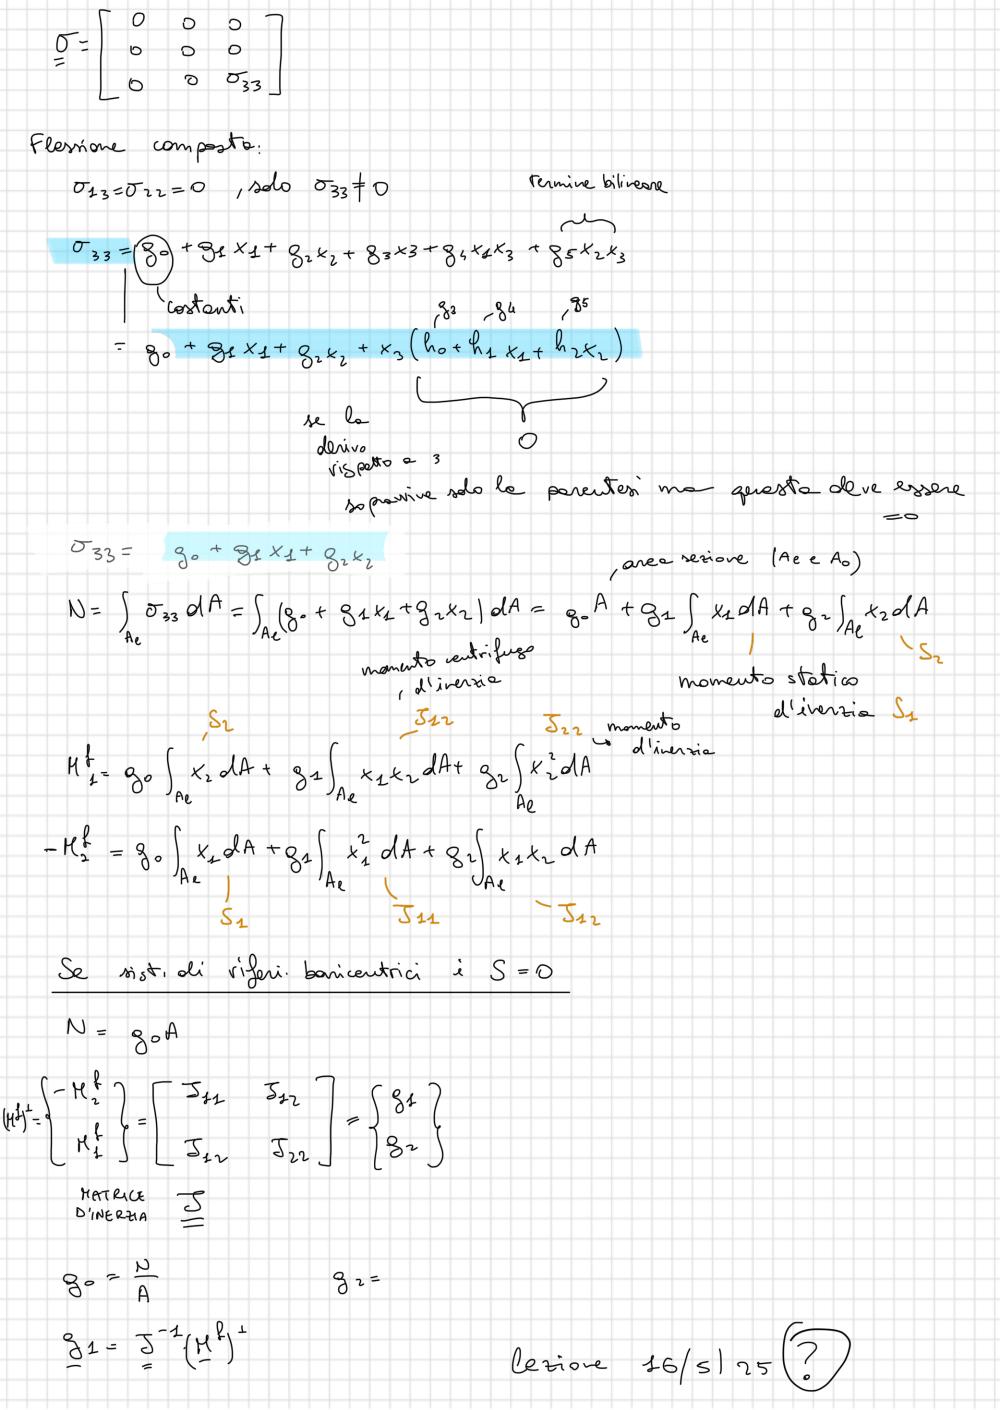 σ = [ 0 0 0
0 0 0
0 0 σ33 ]
Flessione composta:
σ13=σ22=0 , solo σ33≠0
termine bilineare
σ33 = g0 + g1 x1 + g2 x2 + g3 x3 + g4 x1 x3 + g5 x2 x3
costanti
g3 g4 g5
= g0 + g1 x1 + g2 x2 + x3 (h0 + h1 x1 + h2 x2)
0
se la
derivo
rispetto a 3
sopravvive solo la parentesi ma questa deve essere
=0
σ33 = g0 + g1 x1 + g2 x2
area sezione (Ae e A0)
N = ∫Ae σ33 dA = ∫Ae (g0 + g1 x1 + g2 x2) dA = g0 A + g1 ∫Ae x1 dA + g2 ∫Ae x2 dA
S2
momento centrifugo
d'inerzia
momento statico
d'inerzia S1
S2 J12 J22 momento
d'inerzia
M1^f = g0 ∫Ae x2 dA + g1 ∫Ae x1 x2 dA + g2 ∫Ae x2² dA
-M2^f = g0 ∫Ae x1 dA + g1 ∫Ae x1² dA + g2 ∫Ae x1 x2 dA
S1 J11 J12
Se sist. di riferi. baricentrici i S = 0
N = g0 A
(M^f)^⊥ = { -M2^f = [ J11 J12 = { g1
M1^f } J12 J22 ] g2 }
MATRICE
D'INERZIA J
g0 = N/A g2 =
g1 = J^-1 (M^f)^⊥
lezione 16/5/25 ?